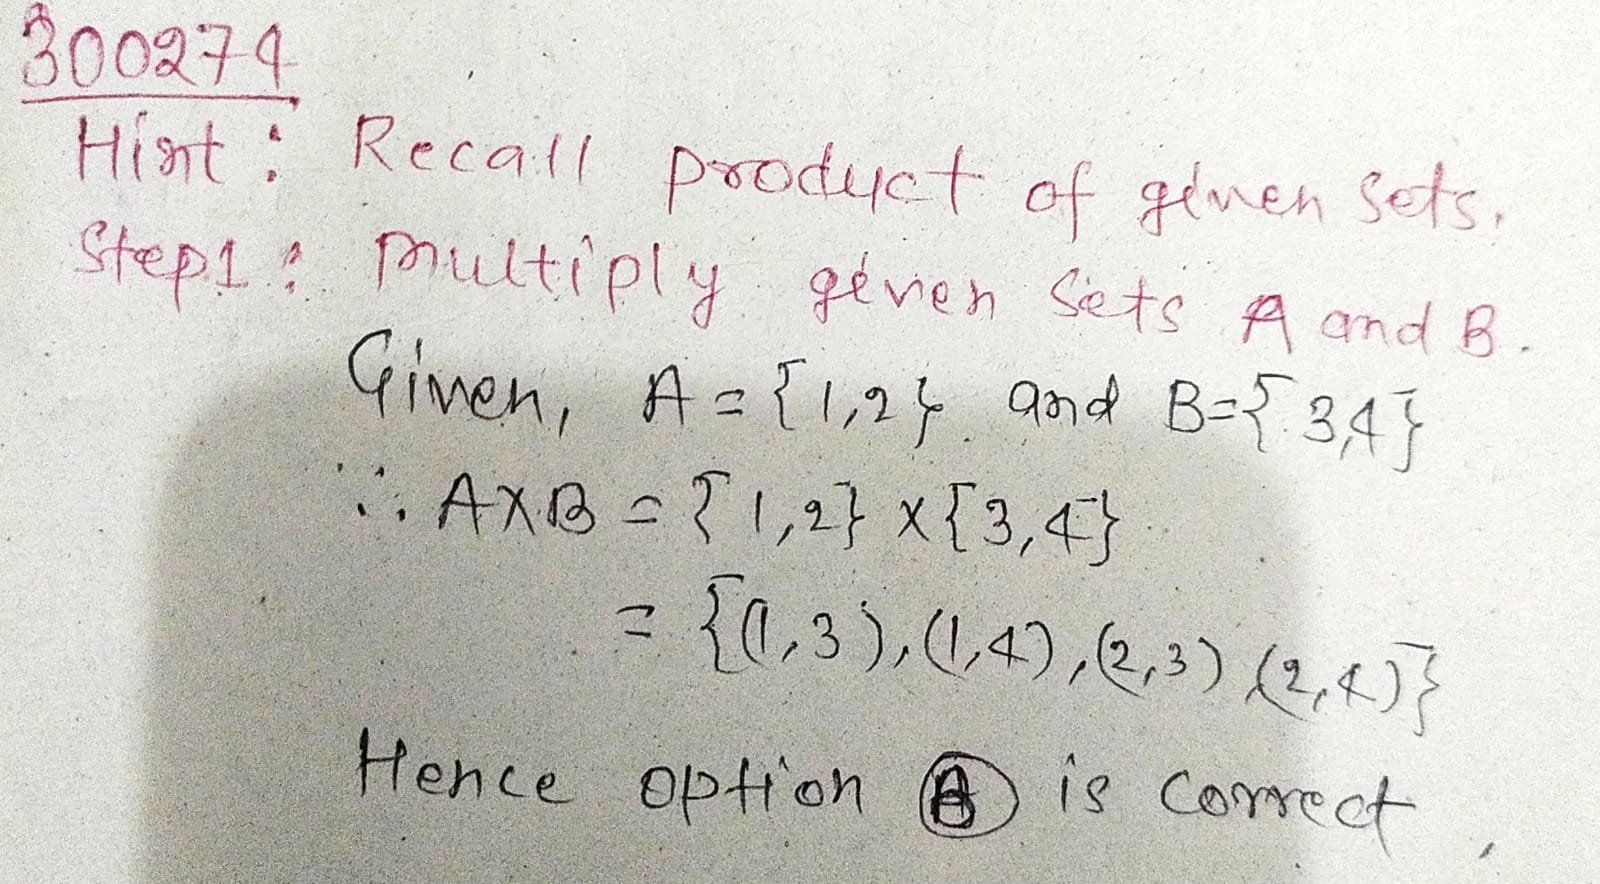 300274
Hint : Recall product of given sets.
Step1 : Multiply given sets A and B.
Given, A = {1,2} and B={3,4}
∴ AXB = {1,2} x {3,4}
= {(1,3),(1,4),(2,3)(2,4)}
Hence option is correct.